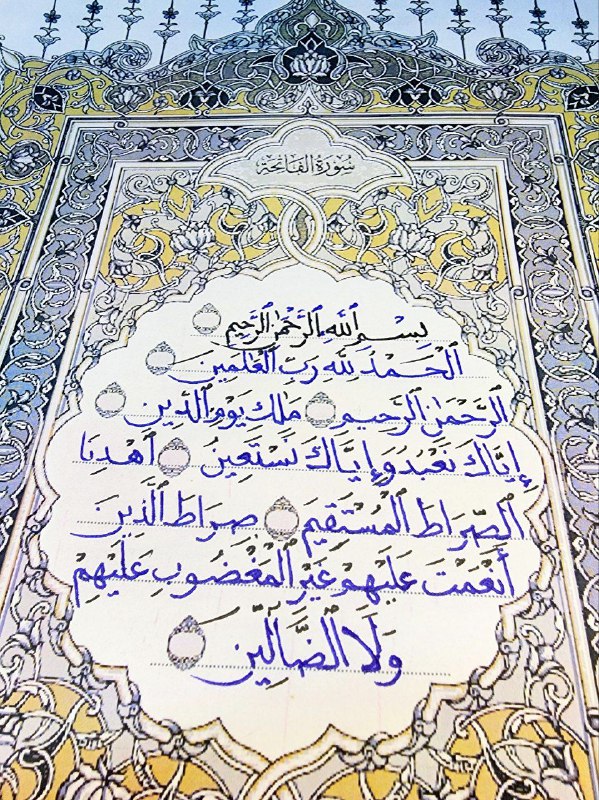 سُورَةُ الْفَاتِحَةِ
بِسْمِ ٱللَّهِ ٱلرَّحْمَٰنِ ٱلرَّحِيمِ
ٱلْحَمْدُ لِلَّهِ رَبِّ ٱلْعَٰلَمِينَ
ٱلرَّحْمَٰنِ ٱلرَّحِيمِ مَٰلِكِ يَوْمِ ٱلدِّينِ
إِيَّاكَ نَعْبُدُ وَإِيَّاكَ نَسْتَعِينُ ٱهْدِنَا
ٱلصِّرَاطَ ٱلْمُسْتَقِيمَ صِرَاطَ ٱلَّذِينَ
أَنْعَمْتَ عَلَيْهِمْ غَيْرِ ٱلْمَغْضُوبِ عَلَيْهِمْ
وَلَا ٱلضَّآلِّينَ